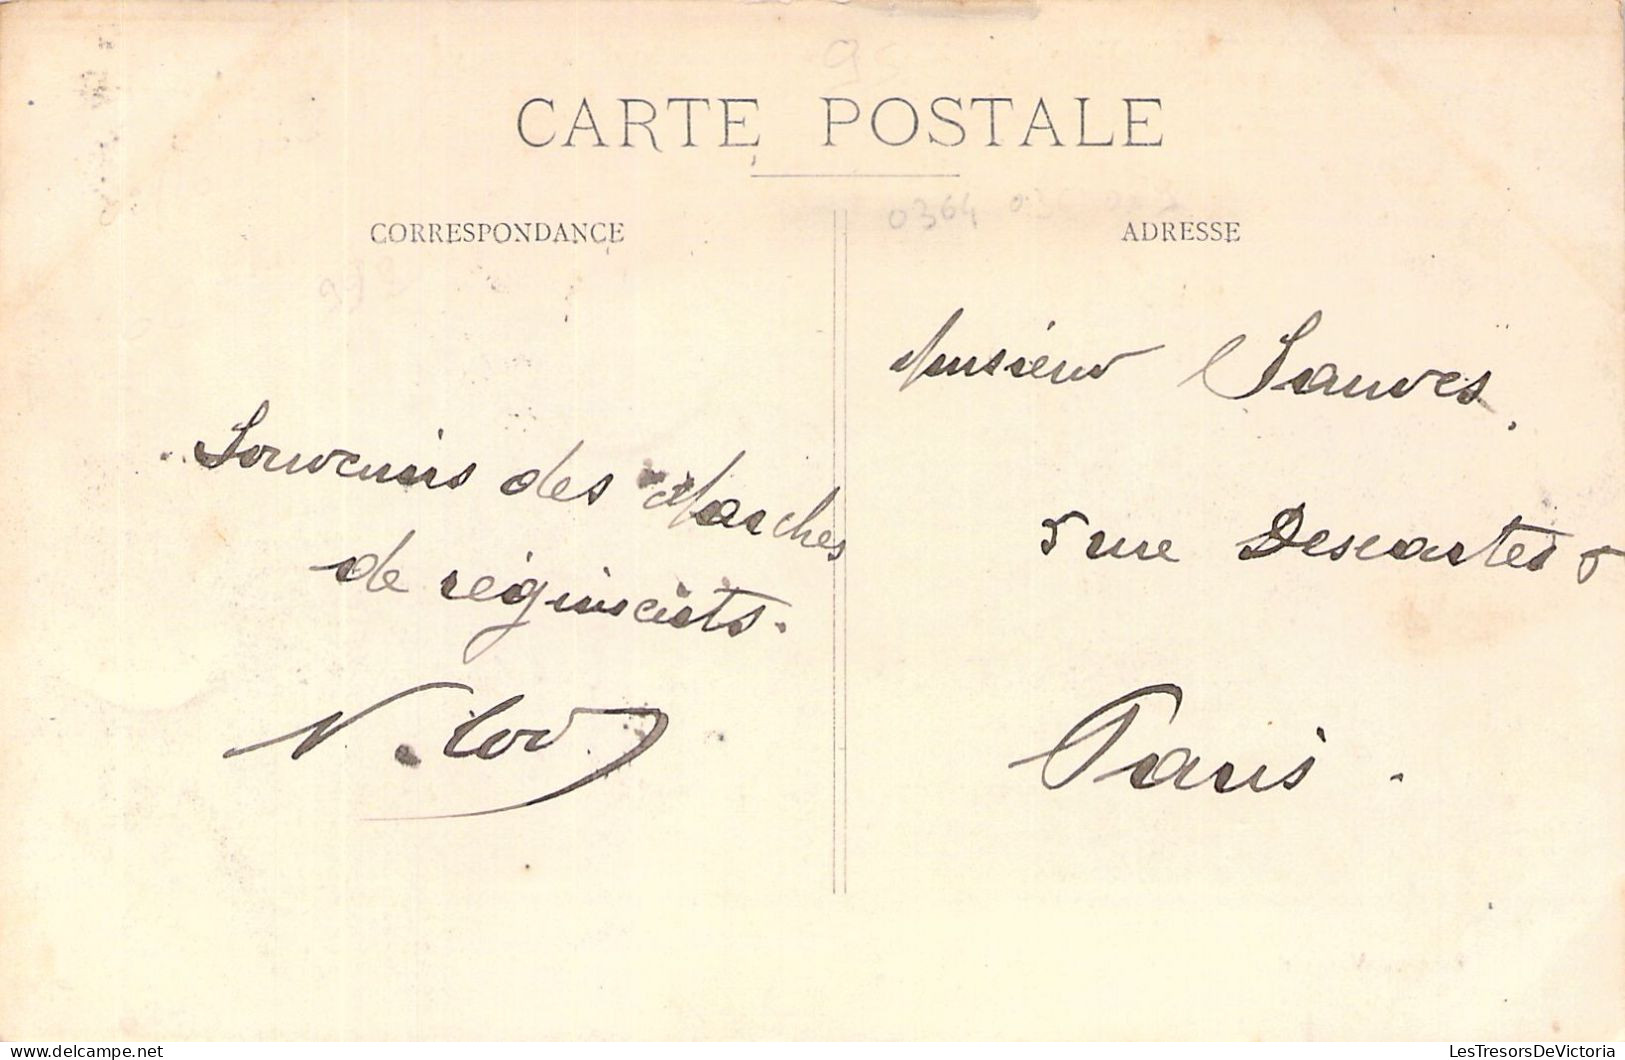 CARTE POSTALE
CORRESPONDANCE
ADRESSE
0364
Souvenirs des Marches
de régiments.
Monsieur Sauves
5 rue Descartes 5
Paris.
LesTresorsDeVictoria